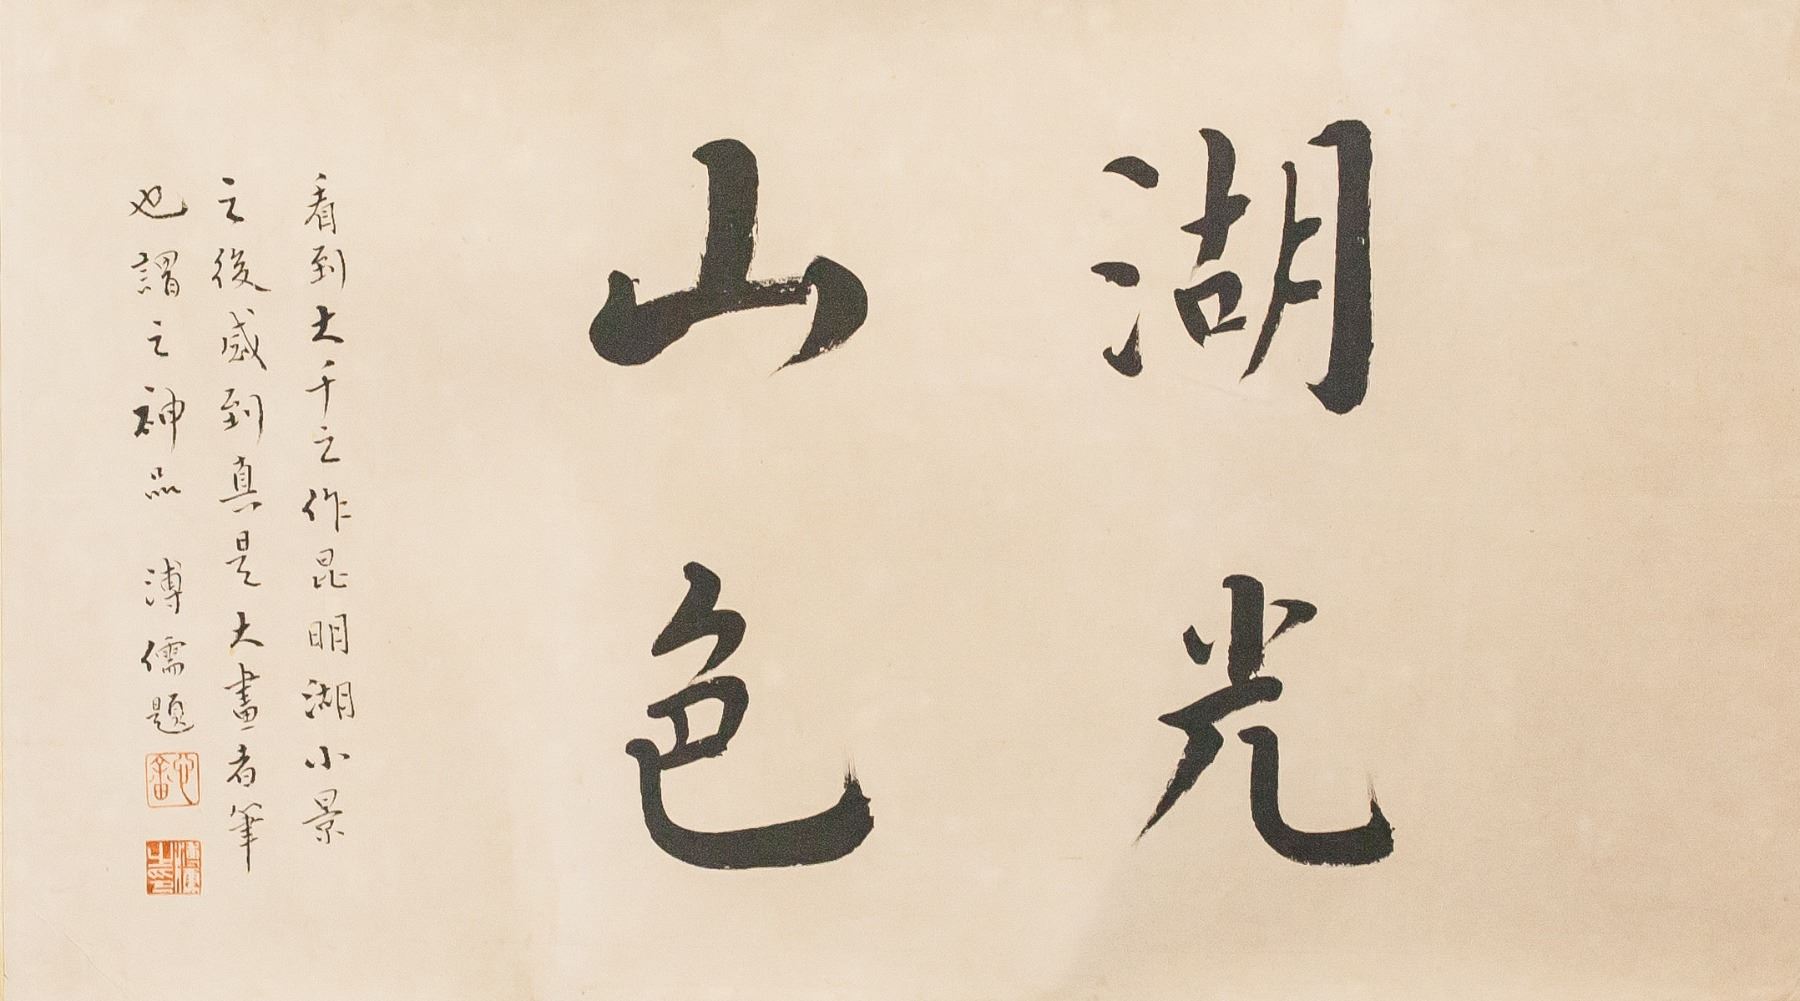 湖光
山色
看到大千之作昆明湖小景
之後感到真是大畫者筆
也謂之神品 溥儒題